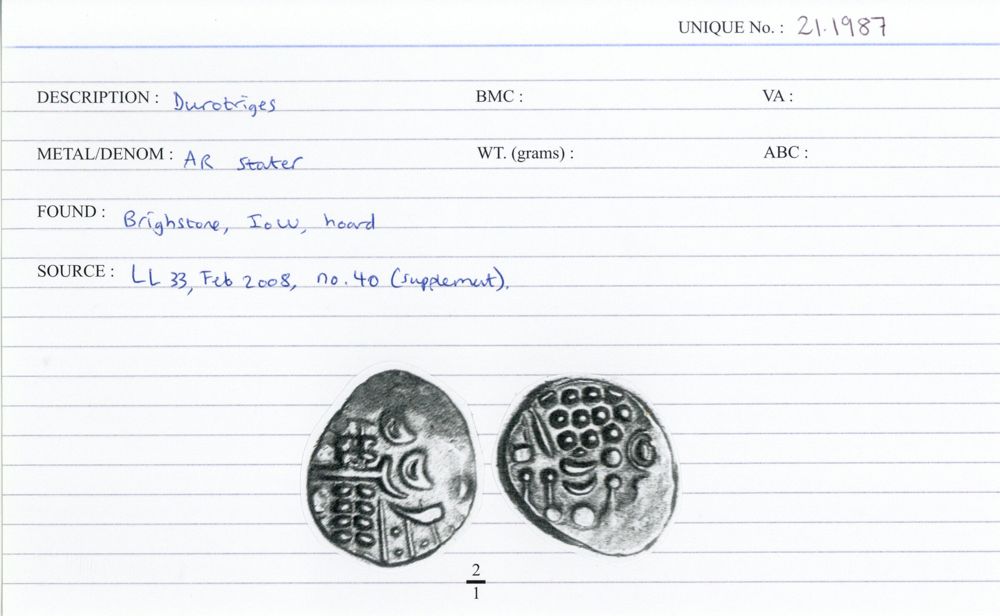 UNIQUE No. : 21.1987
DESCRIPTION : Durotriges BMC : VA :
METAL/DENOM : AR stater WT. (grams) : ABC :
FOUND : Brighstone, IoW, hoard
SOURCE : LL 33, Feb 2008, no. 40 (supplement).
2
1